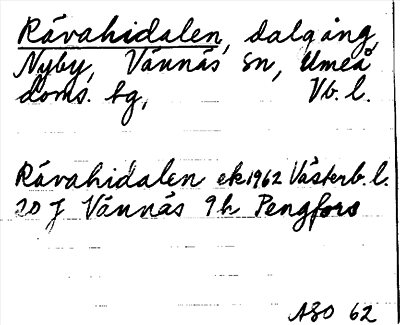 Rävahidalen, dalgång,
Nyby, Vännäs sn, Umeå
doms. tg, Vb. l.
Rävahidalen ek.1962 Västerb. l.
20 J Vännäs 9 h Pengfors
ASO 62